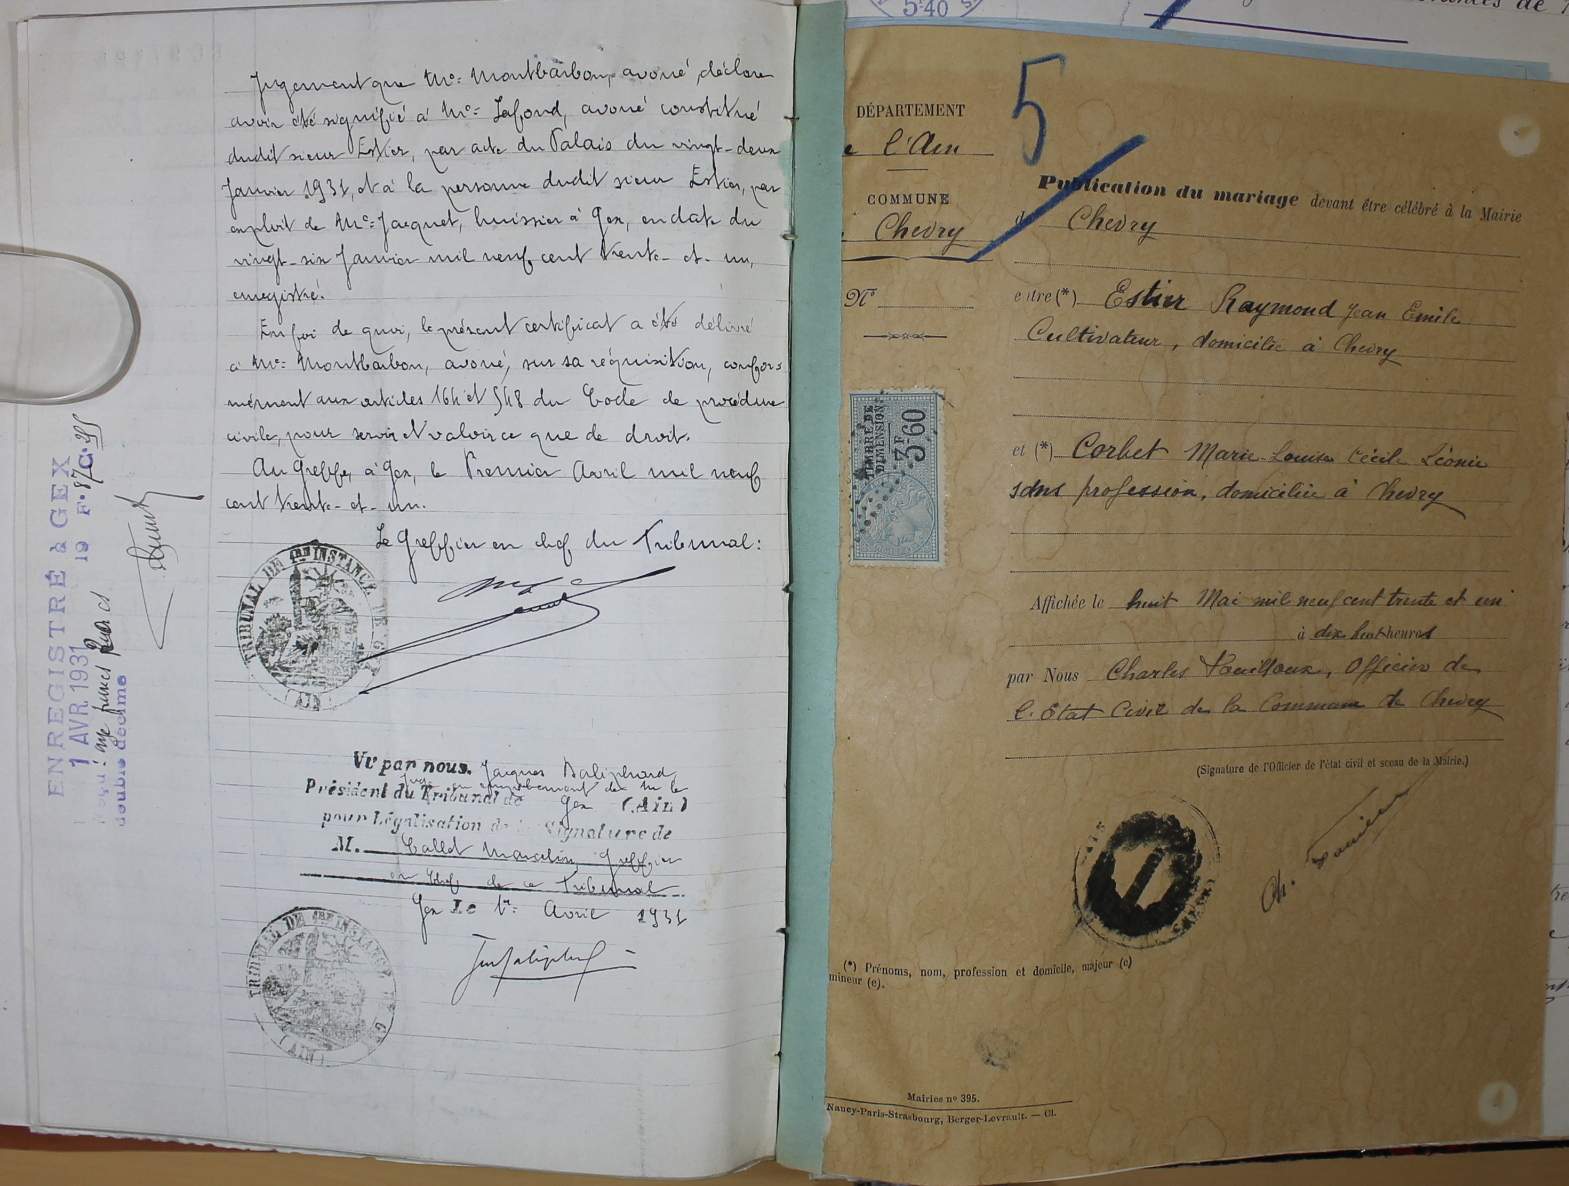 Jugement que Me Montbarbon, avoué, déclare
avoir été signifié à Me Lafond, avoué constitué
dudit sieur Estier, par acte du Palais du vingt-deux
Janvier 1931, et à la personne dudit sieur Estier, par
exploit de Me Jacquet, huissier à Gex, en date du
vingt-six Janvier mil neuf cent trente-et-un,
enregistré.
En foi de quoi, le présent certificat a été délivré
à Me Montbarbon, avoué, sur sa réquisition, confor-
mément aux articles 164 et 548 du Code de procédure
civile, pour servir et valoir ce que de droit.
Au Greffe, à Gex, le Premier Avril mil neuf
cent trente-et-un.
Le Greffier en chef du Tribunal:
TRIBUNAL DE 1ERE INSTANCE DE GEX
(AIN)
ENREGISTRÉ à GEX
1 AVR. 1931 19 F° 87 C.
Reçu: francs
double décime
Vu par nous. Jacques Daliphard
Juge en empêchement de M le
Président du Tribunal de Gex (AIN)
pour Légalisation de la Signature de
M. Callot Marcelin, Greffier
en chef de ce Tribunal
Gex Le 1er Avril 1931
TRIBUNAL DE 1ERE INSTANCE DE GEX
(AIN)
5.40
5
DÉPARTEMENT
l'Ain
COMMUNE
Chevry
N°
TIMBRE DE
DIMENSION
3F60
Publication du mariage devant être célébré à la Mairie
de Chevry
entre (*) Estier Raymond Jean Emile
Cultivateur, domicilié à Chevry
et (*) Corbet Marie-Louise Cécile Léonie
sans profession, domiciliée à Chevry
Affichée le huit Mai mil neuf cent trente et un
à dix huit heures
par Nous Charles Vuilloux, Officier de
l'Etat Civil de la Commune de Chevry
(Signature de l'Officier de l'état civil et sceau de la Mairie.)
(*) Prénoms, nom, profession et domicile, majeur (e)
mineur (e).
Mairies n° 395.
Nancy-Paris-Strasbourg, Berger-Levrault. — Cl.